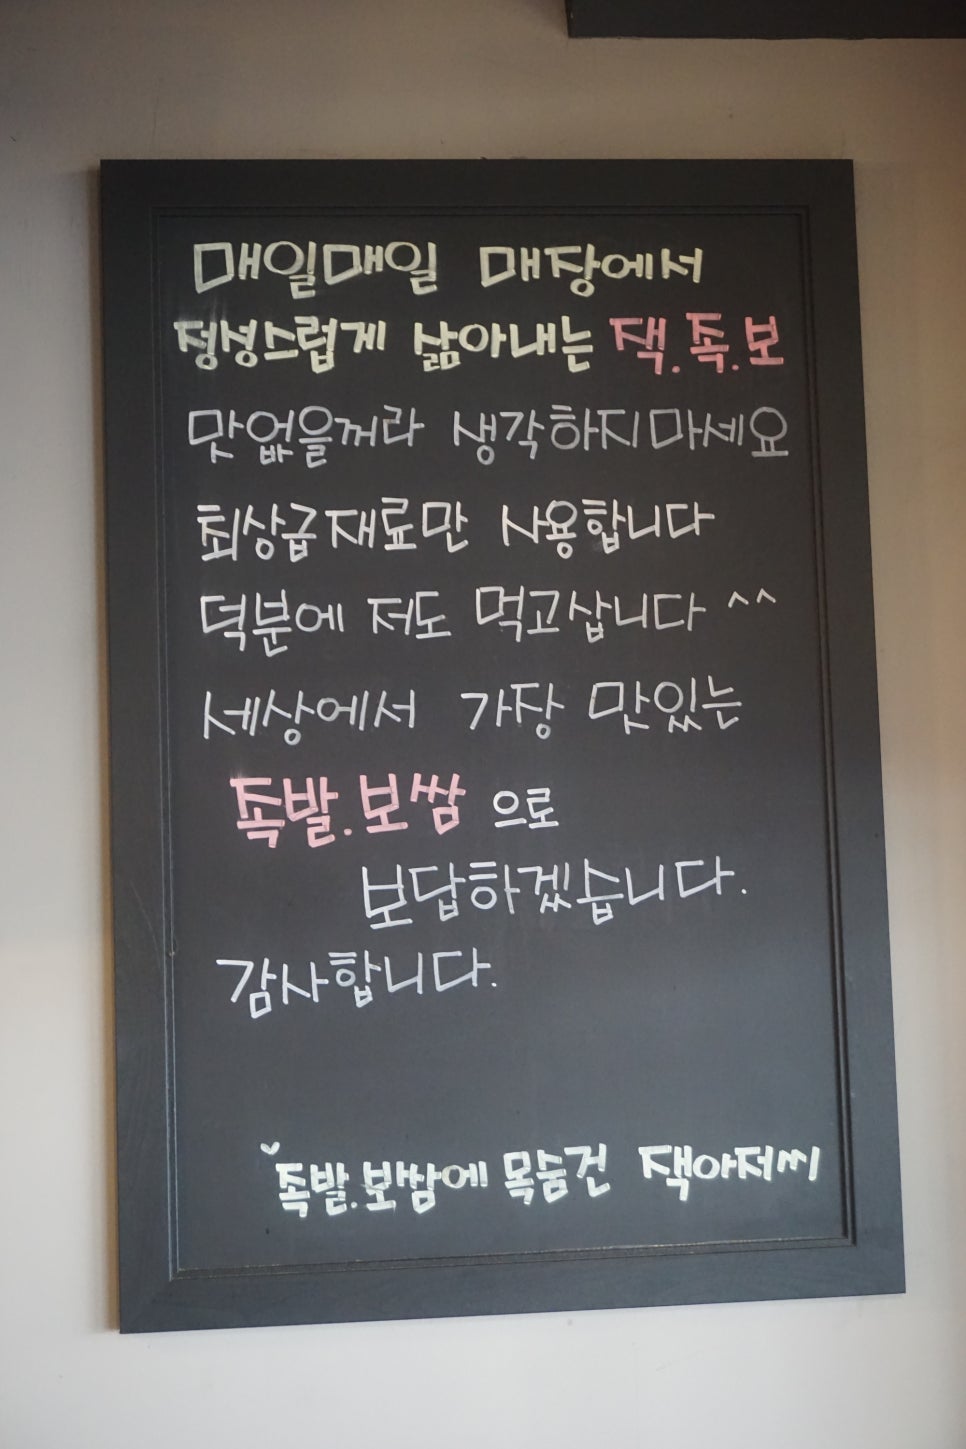 매일매일 매장에서
정성스럽게 삶아내는 잭.족.보
맛없을꺼라 생각하지마세요
최상급재료만 사용합니다
덕분에 저도 먹고삽니다 ^^
세상에서 가장 맛있는
족발.보쌈 으로
보답하겠습니다.
감사합니다.
족발.보쌈에 목숨건 잭아저씨